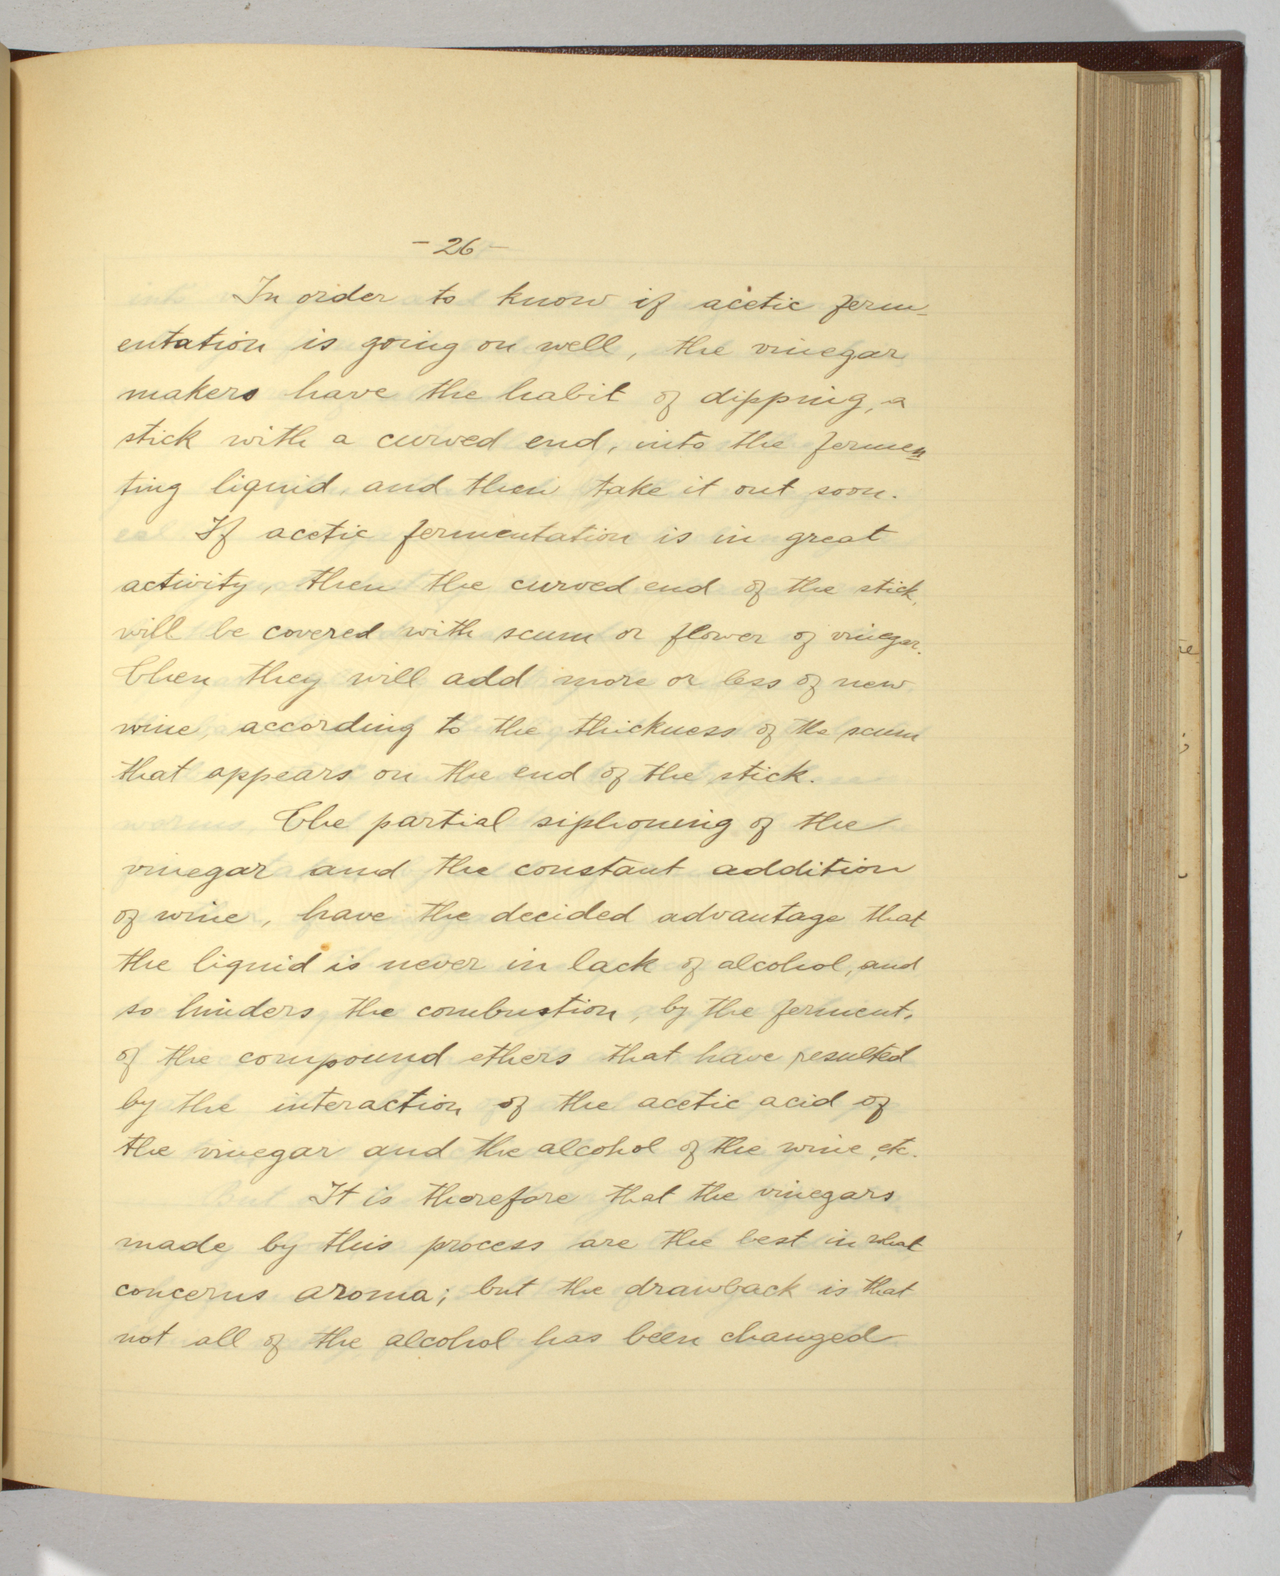 - 26 -
In order to know if acetic ferm-
entation is going on well, the vinegar
makers have the habit of dipping, a
stick with a curved end, into the fermen
ting liquid, and then take it out soon.
If acetic fermentation is in great
activity, then the curved end of the stick,
will be covered with scum or flower of vinegar.
Then they will add more or less of new
wine, according to the thickness of the scum
that appears on the end of the stick.
The partial siphoning of the
vinegar and the constant addition
of wine, have the decided advantage that
the liquid is never in lack of alcohol, and
so hinders, the combustion, by the ferment,
of the compound ethers that have resulted
by the interaction of the acetic acid of
the vinegar and the alcohol of the wine, etc.
It is therefore that the vinegars
made by this process are the best in what
concerns aroma; but the drawback is that
not all of the alcohol has been changed